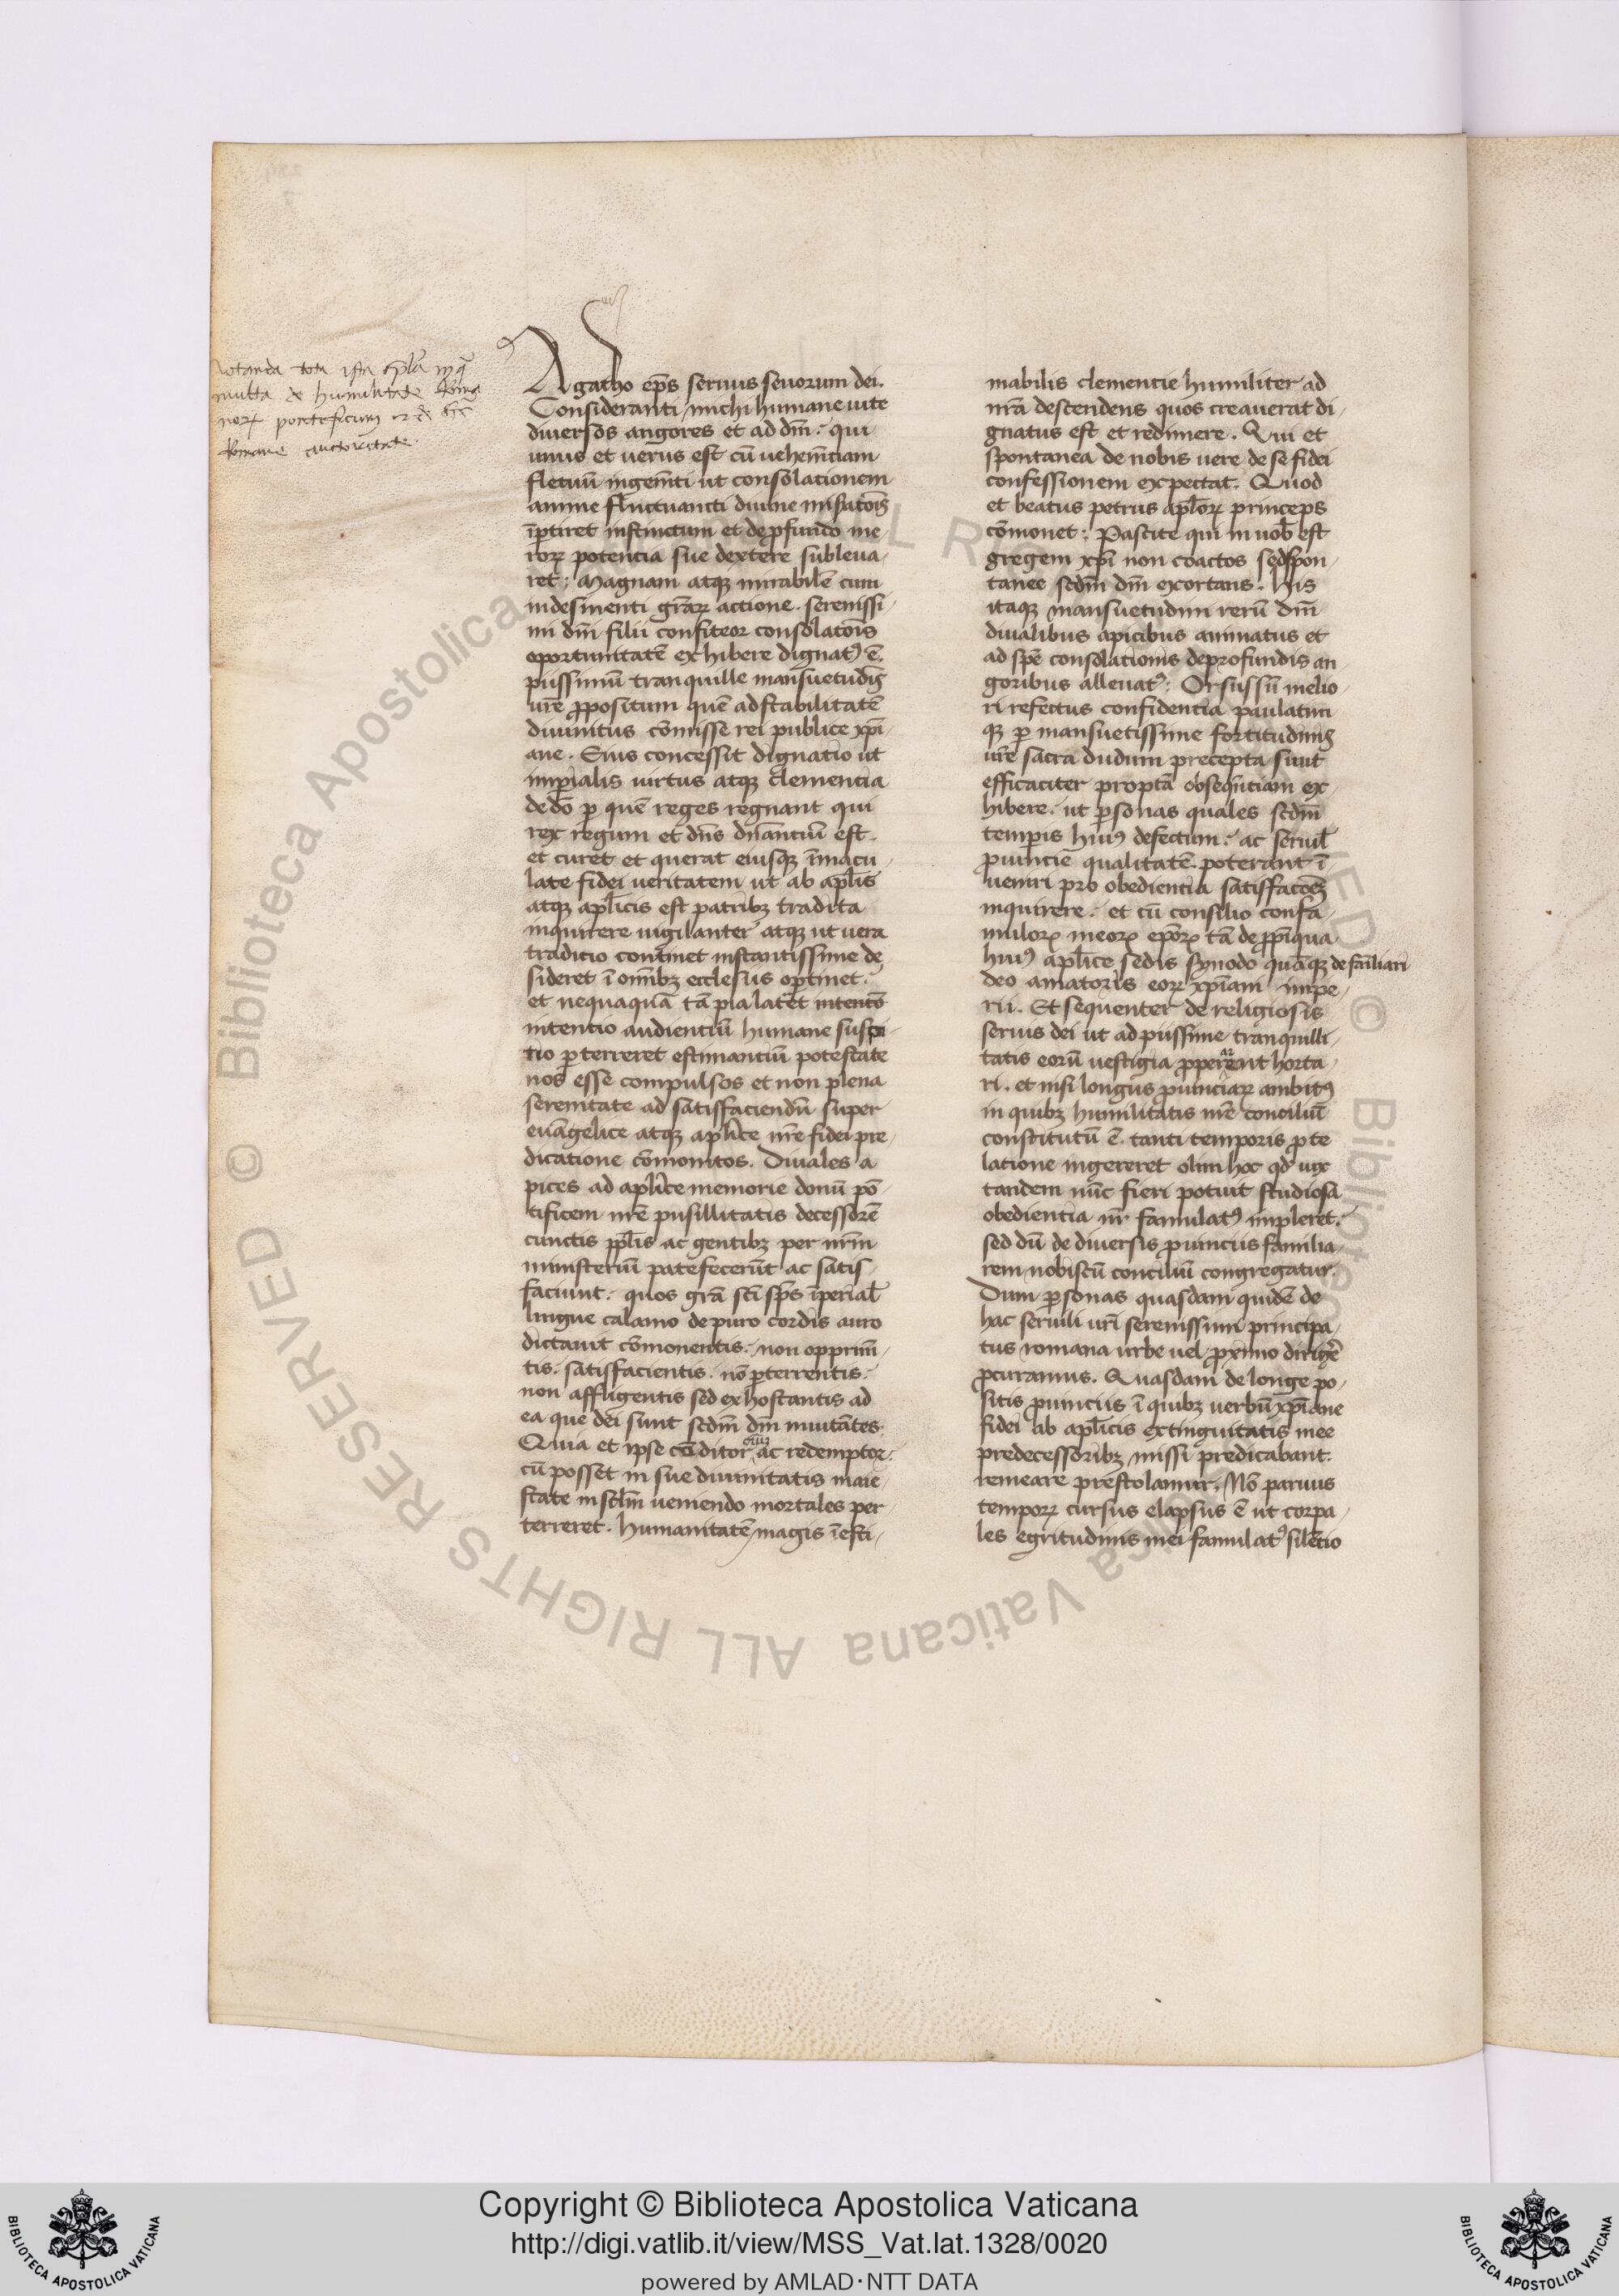 Notanda tota ista epl̄a in q̄
multa de humilitate Roma
norꝝ pontificum et de
Romane auctoritate
Agatho ep̄s seruus seuorum dei.
Consideranti michi humane uite
diuersos angores et ad dn̄i: qui
unus et uerus est cū uehem̄ciam
fletuū ingem̄ti ut consolationem
anime fluctuanti diuine mis̄atōis
īꝑtiret instinctum et de ꝓfundo me
rorꝝ potencia sue dextere subleua-
ret: Magnam atqꝫ mirabilē cum
indesinenti gr̄arꝝ actione. serenissi-
mi dn̄i filii confiteor consolatōis
oportunitatē exhibere dignatꝰ ē.
piissimū tranquille mansuetudīs
ur̄e ꝓpositum quē ad stabilitatē
diuinitus cōmisse rei publice xp̄i-
ane. Eius concessit dignatio ut
imꝑialis uirtus atqꝫ clementia
de dō ꝑ quē reges regnant qui
rex regum et dn̄s dn̄antiū est.
et curet et querat eiusqꝫ īmacu-
late fidei ueritatem ut ab apl̄is
atqꝫ apl̄icis est patribꝫ tradita
inquirere uigilanter atqꝫ ut uera
traditio continet instantissime de
sideret ī om̄ibꝫ ecclesiis optinet.
et nequaquā tā pia latet intentō
intentio audientiū humane suspi-
tio ꝑterreret estimantiū potestate
nos esse compulsos et non plena
serenitate ad satisfaciendū super
euāgelice atqꝫ apl̄ice nr̄e fidei pre-
dicatione cōmonitos. Diuales a
pices ad apl̄ice memorie donū pō-
tificem nr̄e pusillitatis decessorē
cunctis ppl̄is ac gentibꝫ per nr̄m
ministeriū patefecerūt ac satis-
faciunt. quos grā sc̄i sp̄s īperial̄
lingue calamo de puro cordis auro
dictauit cōmonentis. non opprim̄-
tis. satisfacientis. nō ꝑterrentis.
non affligentis sed exhostantis ad
ea que dei sunt scdm̄ dm̄ inuitātes.
Quia et ipse cōditor oīuꝫ ac redemptor.
cū posset in sue diuinitatis maie-
state in scl̄m ueniendo mortales per-
terreret. humanitatē magis īesti-
mabilis clementie humiliter ad
nr̄a descendens quos creauerat di-
gnatus est et redimere. Qui et
spontanea de nobis uere de se fidei
confessionem expectat. Quod
et beatus petrus apl̄orꝝ princeps
cōmonet: Pascite qui in uob̄ est
gregem xp̄i non coactos sed spon-
tanee scdm̄ dm̄ exortans. his
itaqꝫ mansuetudini rerū dn̄i
diualibus apicibus animatus et
ad spē consolationis de profundis an
goribus alleuatꝰ: Orsus sū melio-
ri refectus confidentia paulatim
qꝫ ꝑ mansuetissime fortitudinis
ur̄e sacra dudum precepta sunt
efficaciter proptā obseqūtiam ex-
hibere. ut ꝑsonas quales scdm̄
temporis huiꝰ defectum: ac seruil̄
ꝓuincie qualitatē poterant ī-
ueniri pro obedientia satisfacōis
inquirere. et cū consilio confa-
mulorꝝ meorꝝ ep̄orꝝ tā de ꝓp̄iqua
huiꝰ apl̄ice sedis synodo quāqꝫ de fam̄iliari
deo amatoris eorꝝ xp̄iam impe-
rii. Et sequenter de religiosis
seruis dei ut ad piissime tranquilli-
tatis eorū uestigia ꝓperent horta-
ri. et nisi longus ꝓuinciarꝝ ambitꝰ
in quibꝫ humilitatis nr̄e conciliū
constitutū ē. tanti temporis ꝓte
latione ingereret olim hoc qd̄ uix
tandem nūc fieri potuit studiosa
obedientia nr̄i famulatꝰ impleret.
sed dū de diuersis ꝓuinciis familia-
rem nobiscū conciliū congregatur.
Dum ꝑsonas quasdam quidē de
hac seruili uri serenissimi principa-
tus romana urbe uel ꝓximo dirigē
ꝓcuramus. Quasdam de longe po-
sitis ꝓuinciis ī quibꝫ uerbū xp̄iane
fidei ab apl̄icis extinguitatis mee
predecessoribꝫ missi predicabant.
remeare prestolamur. Nō paruus
temporꝝ cursus elapsus ē ut corpa-
les egritudinis mei famulatꝰ silētio
Copyright © Biblioteca Apostolica Vaticana
http://digi.vatlib.it/view/MSS_Vat.lat.1328/0020
powered by AMLAD·NTT DATA